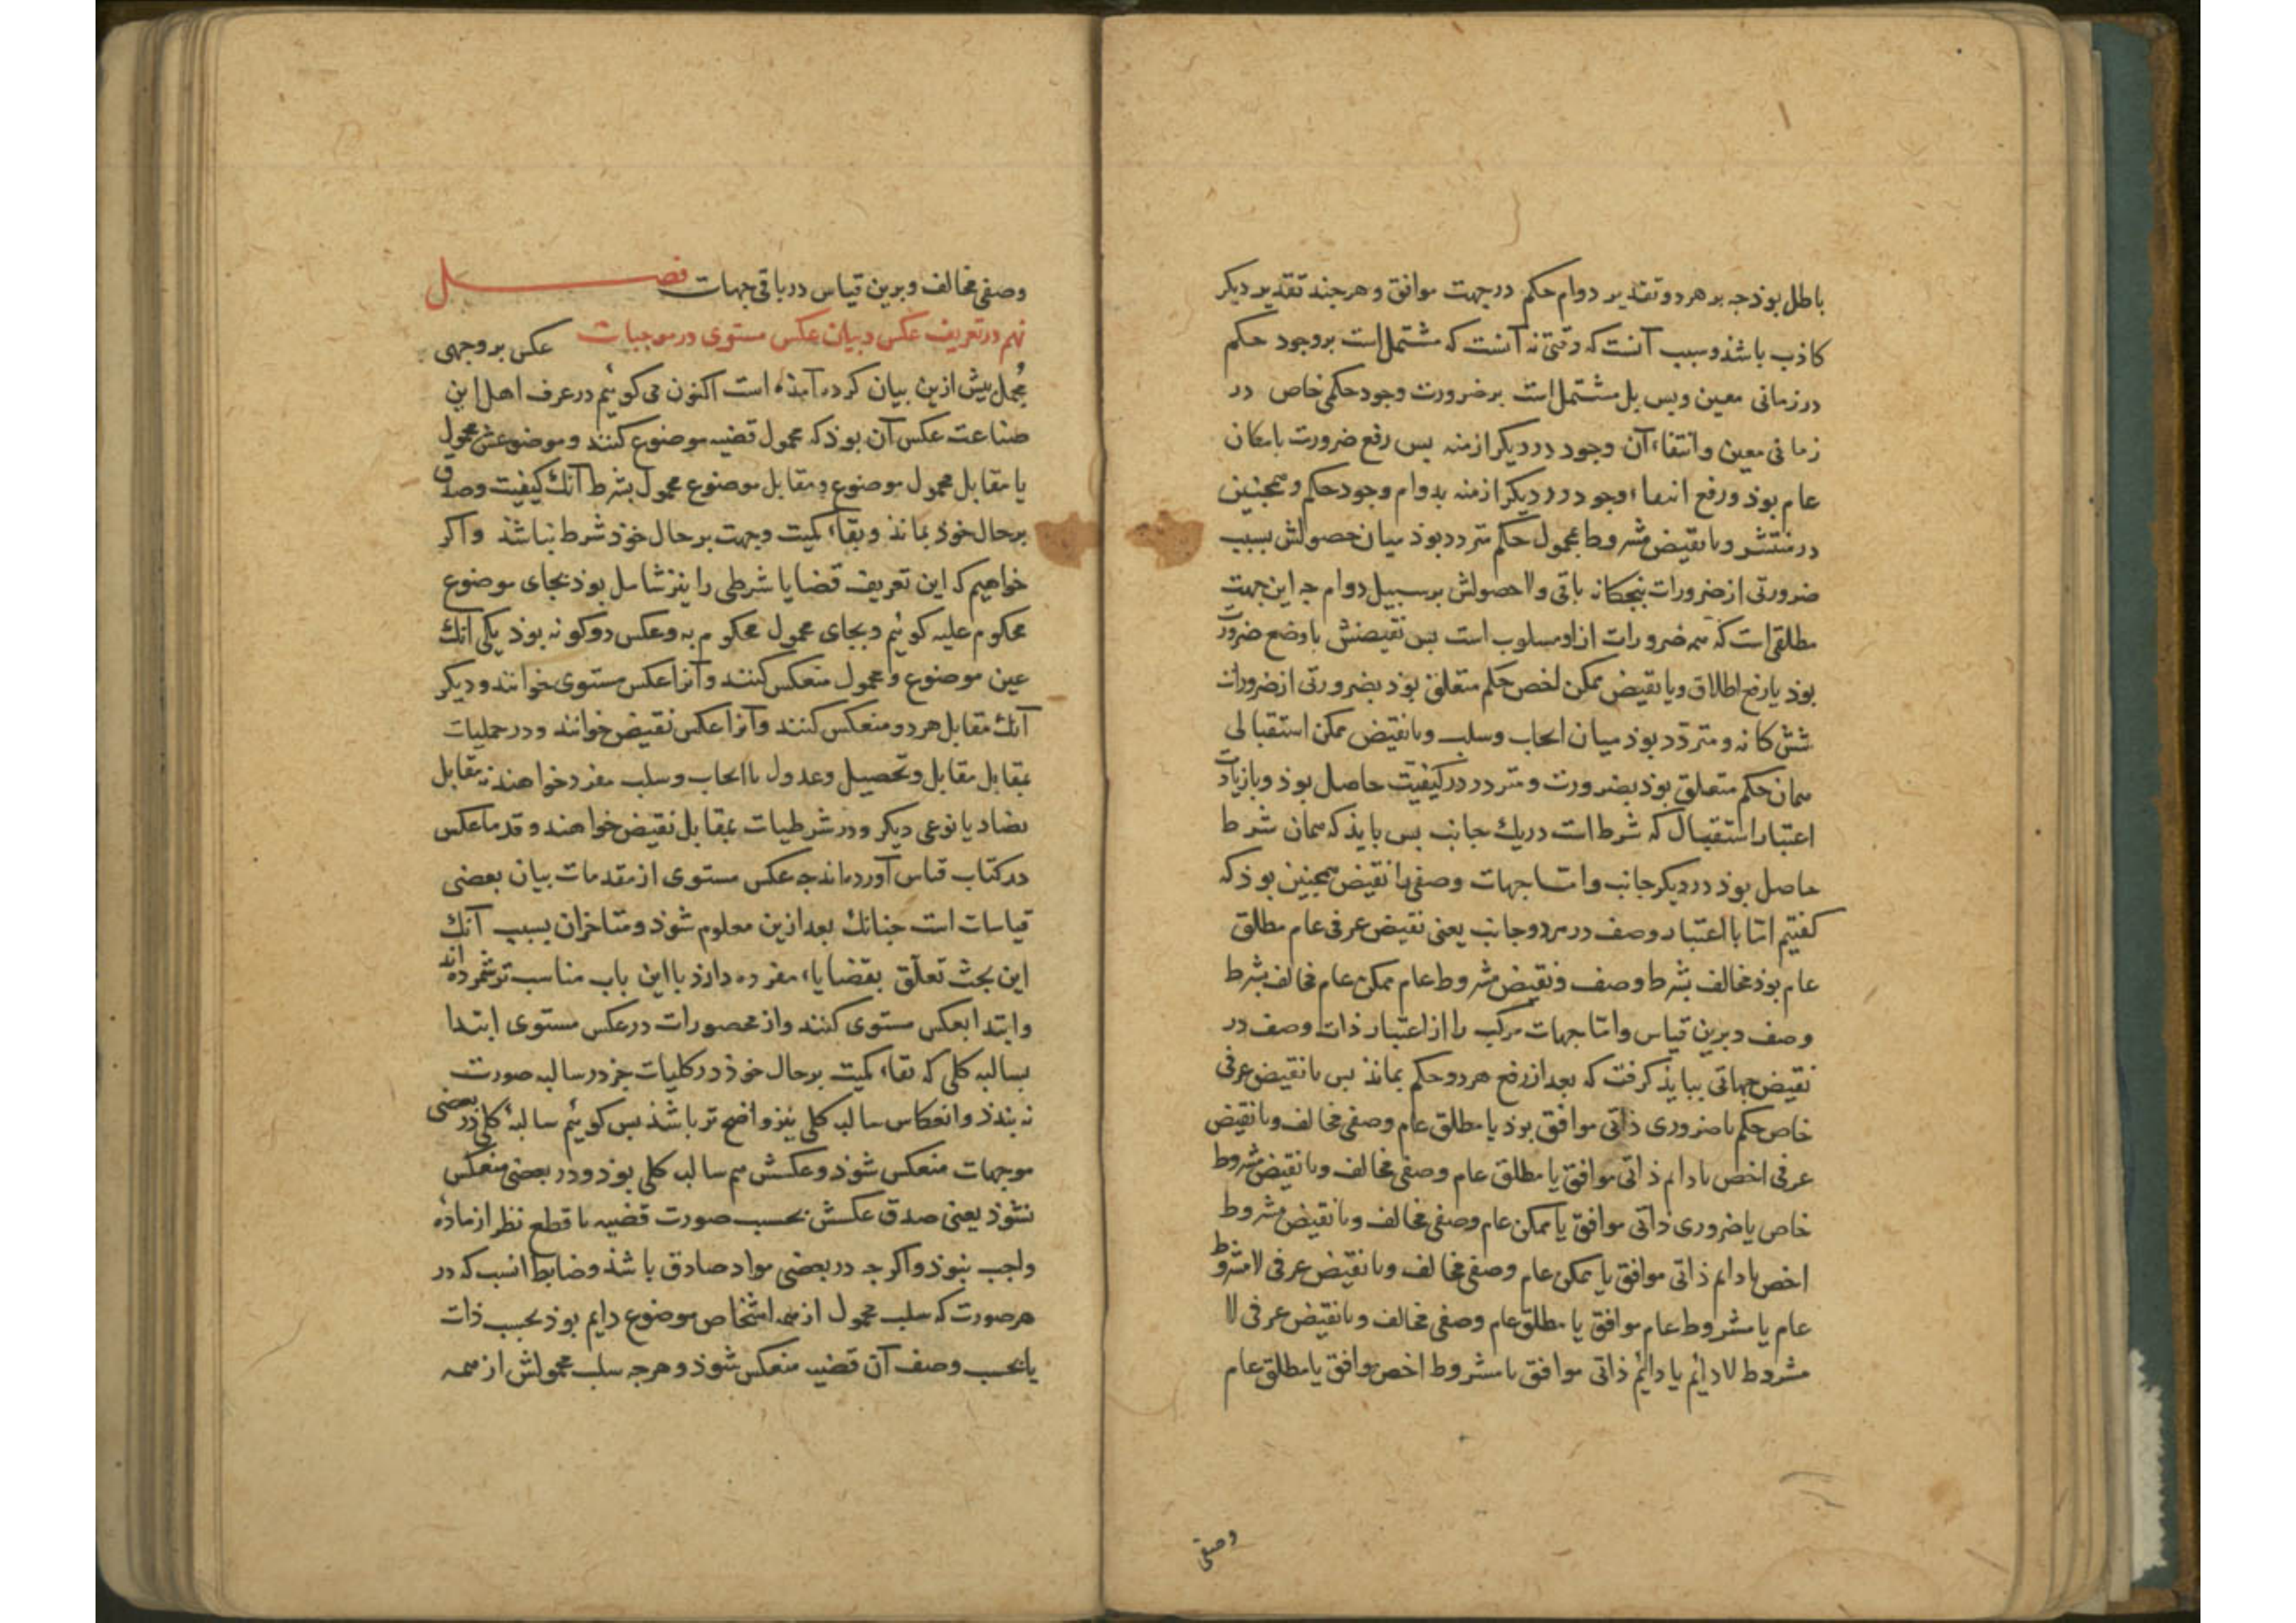 باطل بوذ جه بر هر دو تقدیر دوام حکم در جهت موافق و هر جند تقدیر دیکر
کاذب باشذ و سبب آنست که وقتی نه آنست که مشتمل است بر وجود حکم
در زمانی معین و بس بل مشتمل است بر ضرورت وجود حکمی خاص در
زمانی معین و انتفاء آن وجود در دیکر ازمنه بس رفع ضرورت بامکان
عام بوذ و رفع انتفاء وجود در دیکر ازمنه بدوام وجود حکم و همجنین
در منتشر و با نقیض مشروط بمحمول حکم متردد بوذ میان حصولش بسبب
ضرورتی از ضرورات بنجکانه باقی ولا حصولش بر سبیل دوام جه این جهت
مطلقی است که همه ضرورات ازو مسلوب است بس نقیضش با وضع ضرورت
بوذ یا رفع اطلاق و با نقیض ممکن اخص حکم متعلق بوذ بضرورتی از ضرورات
شش کانه و متردد بوذ میان ایجاب و سلب و با نقیض ممکن استقبالی
همان حکم متعلق بوذ بضرورت و متردد در کیفیت حاصل بوذ و با زیادت
اعتبار استقبال که شرط است در یك جانب بس بایذ که همان شرط
حاصل بوذ در دیکر جانب و اما جهات وصفی را نقیض همجنین بوذ که
کفتیم اما با اعتبار وصف در هر دو جانب یعنی نقیض عرفی عام مطلق
عام بوذ مخالف بشرط وصف و نقیض مشروط عام ممکن عام مخالف بشرط
وصف و برین قیاس و اما جهات مرکب را از اعتبار ذات وصف در
نقیض جهاتی ببایذ کرفت که بعد از رفع هر دو حکم بمانذ بس با نقیض عرفی
خاص حکم با ضروری ذاتی موافق بوذ یا مطلق عام وصفی مخالف و با نقیض
عرفی اخص با دایم ذاتی موافق یا مطلق عام وصفی مخالف و با نقیض مشروط
خاص یا ضروری ذاتی موافق یا ممکن عام وصفی مخالف و با نقیض مشروط
اخص با دایم ذاتی موافق یا ممکن عام وصفی مخالف و با نقیض عرفی لا مشروط
عام یا مشروط عام موافق یا مطلق عام وصفی مخالف و با نقیض عرفی لا
مشروط لا دایم یا دایم ذاتی موافق با مشروط اخص موافق یا مطلق عام
وصفی
وصفی مخالف و برین قیاس در باقی جهات فصل
نهم در تعریف عکس و بیان عکس مستوی در موجبات عکس بر وجهی
مجمل بیش ازین بیان کرده آمذه است اکنون می کوئیم در عرف اهل این
صناعت عکس آن بوذ که محمول قضیه موضوع کنند و موضوعش محمول
یا مقابل محمول موضوع و مقابل موضوع محمول بشرط آنك کیفیت و صدق
بر حال خوذ بمانذ و بقاء کمیت و جهت بر حال خوذ شرط نباشذ و اکر
خواهیم که این تعریف قضایا شرطی را نیز شامل بوذ بجای موضوع
محکوم علیه کوئیم و بجای محمول محکوم به و عکس دو کونه بوذ یکی آنك
عین موضوع و محمول منعکس کنند و آنرا عکس مستوی خوانند و دیکر
آنك مقابل هر دو منعکس کنند و آنرا عکس نقیض خوانند و در حملیات
بمقابل مقابل و تحصیل و عدول با ایجاب و سلب مفرد خواهند نه مقابل
تضاد یا نوعی دیکر و در شرطیات بمقابل نقیض خواهند و قدما عکس
در کتاب قیاس آورده‌اند جه عکس مستوی از مقدمات بیان بعضی
قیاسات است جنانك بعد ازین معلوم شوذ و متاخران بسبب آنك
این بحث تعلق بقضایاء مفرده دارذ با این باب مناسب تر شمرده اند
و ابتدا بعکس مستوی کنند و از محصورات در عکس مستوی ابتدا
بسالبه کلی که بقاء کمیت بر حال خوذ در کلیات جز در سالبه صورت
نه بندذ و انعکاس سالبه کلی نیز واضح تر باشذ بس کوئیم سالبهٔ کلی در بعضی
موجهات منعکس شوذ و عکسش هم سالبه کلی بوذ و در بعضی منعکس
نشوذ یعنی صدق عکسش بحسب صورت قضیه با قطع نظر از ماده
واجب نبوذ و اکر جه در بعضی مواد صادق باشذ و ضابط آنست که در
هر صورت که سلب محمول از همه اشخاص موضوع دایم بوذ بحسب ذات
یا بحسب وصف آن قضیه منعکس شوذ و هر جه سلب محمولش از همه